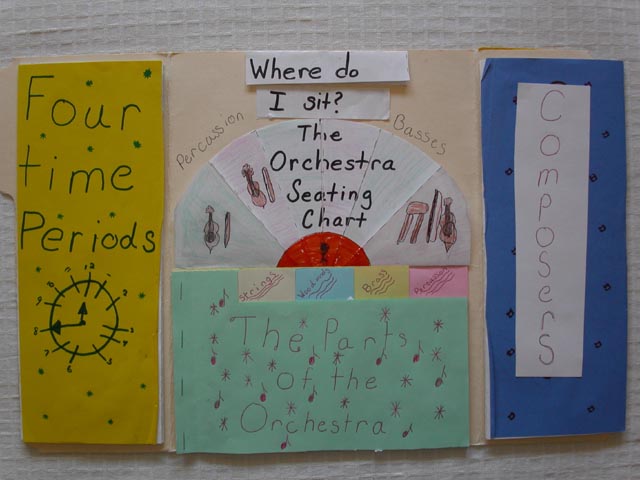 Four
time
Periods
12
Where do
I sit?
Percassion
Basses
The
Orchestra
Seating
Chart
Strings
Woodwinds
Brass
Percussion
The Parts
of the
Orchestra
Composers